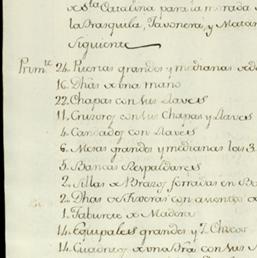 de Sta. Catalina para la morada
la Trasquila, Javonera, y Matan
Siguiente
Primte. 24. Puertas grandes y medianas de
16. Dhas de una mano
22. Chapas con sus llaves
11. Cruzeros con sus Chapas y llaves
4. Candados con llaves
6. Mesas grandes y medianas las 3.
5. Bancas Respaldares
2. Sillas de Brazos forradas en Ba
2. Dhas de con asientos de
1. Taburete de Madera
14. Equipales grandes y 7. Chicos
14. Cuadros de una Bra. con sus M